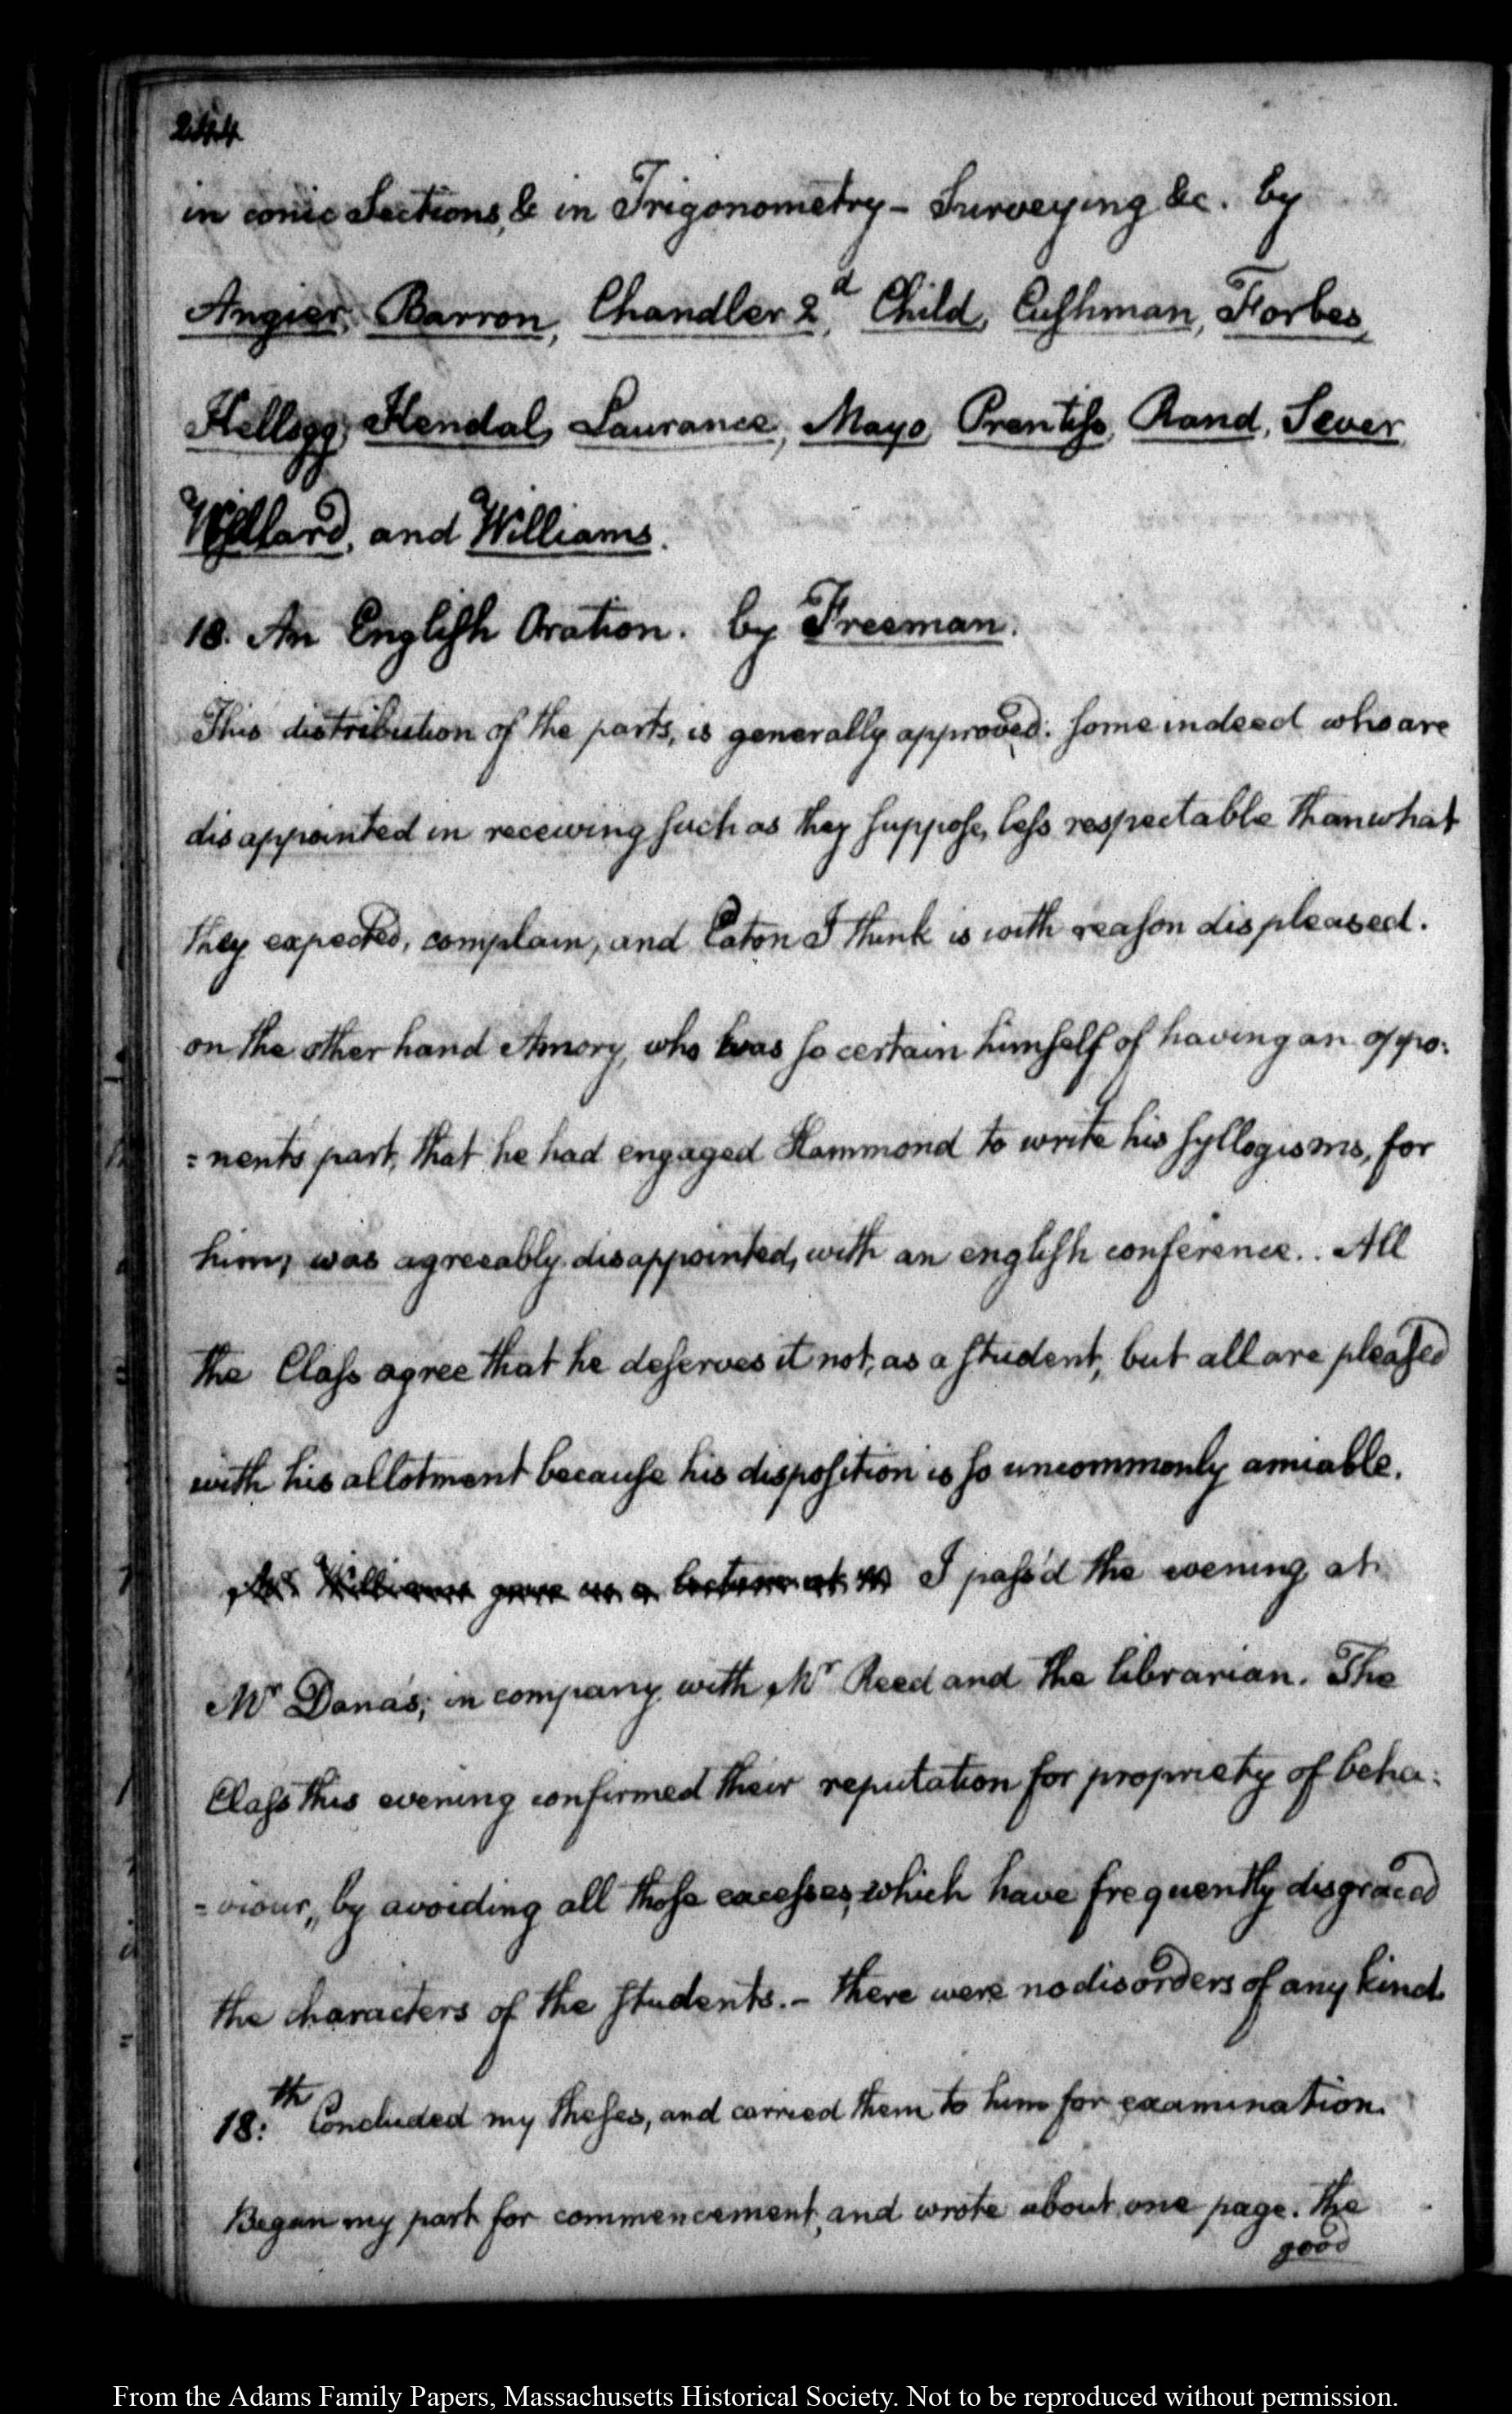 244
in conic Sections, & in Trigonometry - Surveying &c. by
Angier, Barron, Chandler 2d, Child, Cuſhman, Forbes,
Kellogg, Kendal, Laurance, Mayo, Prentiſs, Rand, Sever
Willard, and Williams.
18. An Engliſh Oration. by Freeman.
This distribution of the parts, is generally approved: ſome indeed who are
disappointed in receiving ſuch as they ſuppoſe, leſs respectable than what
they expected, complain, and Eaton I think is with reaſon displeased.
on the other hand Amory, who was ſo certain himſelf of having an oppo:
=nents part, that he had engaged Hammond to write his ſyllogisms, for
him, was agreeably disappointed, with an engliſh conference.. All
the Claſs agree that he deſerves it not, as a ſtudent, but all are pleaſed
with his allotment becauſe his dispoſition is ſo uncommonly amiable.
Mr. Williams gave us a lecture at I paſs'd the evening at
Mr Dana's; in company with Mr Reed and the librarian. The
Claſs this evening confirmed their reputation for propriety of beha:
=viour, by avoiding all thoſe exceſses, which have frequently disgraced
the characters of the ſtudents. - there were no disorders of any kind.
18:th Concluded my theſes, and carried them to him for examination.
Began my part for commencement, and wrote about one page. The
good
From the Adams Family Papers, Massachusetts Historical Society. Not to be reproduced without permission.